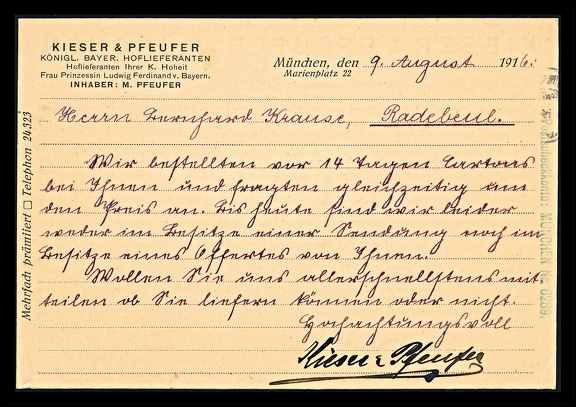 KIESER & PFEUFER
KÖNIGL. BAYER. HOFLIEFERANTEN
Hoflieferanten Ihrer K. Hoheit
Frau Prinzessin Ludwig Ferdinand v. Bayern.
INHABER: M. PFEUFER
München, den 9. August 1916.
Marienplatz 22
Herrn Bernhard Krause, Radebeul.
Wir bestellten vor 14 Tagen Cartons
bei Ihnen und fragten gleichzeitig um
den Preis an. Bis heute sind wir leider
weder im Besitze einer Sendung noch im
Besitze eines Offertes von Ihnen.
Wollen Sie uns allerschnellstens mit
teilen ob Sie liefern können oder nicht.
Hochachtungsvoll
Kieser & Pfeufer
Mehrfach prämiiert □ Telephon 24323
Postscheckkonto: MÜNCHEN Nr. 6289.